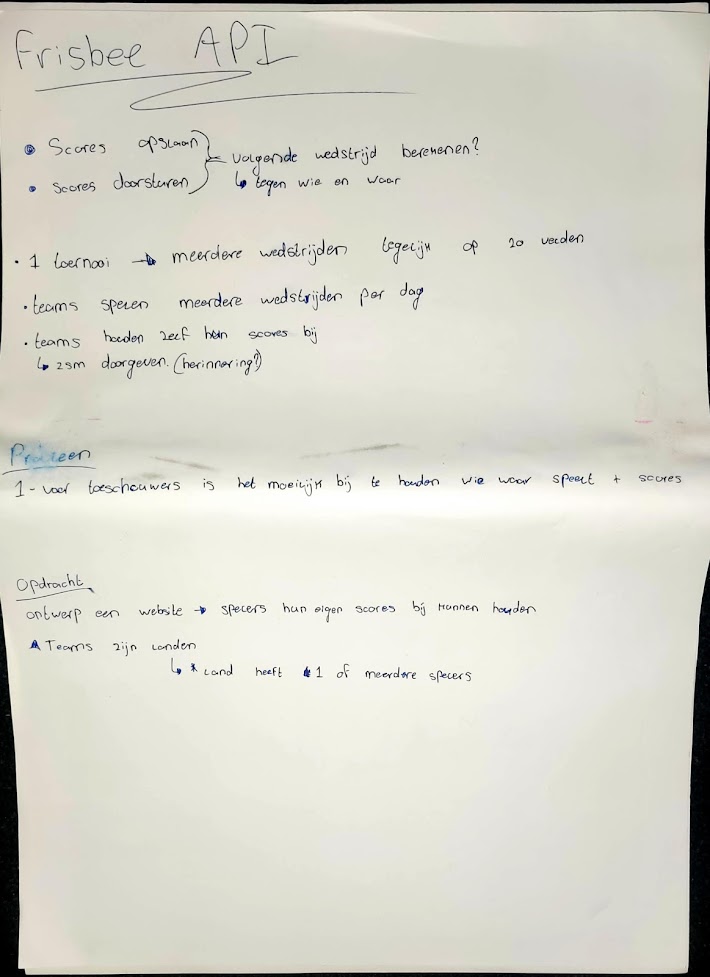 Frisbee API
• Scores opslaan
volgende wedstrijd berekenen?
• scores doorsturen
↳ tegen wie en waar
• 1 toernooi → meerdere wedstrijden tegelijk op 20 velden
• teams spelen meerdere wedstrijden per dag
• teams houden zelf hun scores bij
↳ zsm doorgeven. (herinnering?)
Probleem
1 - voor toeschouwers is het moeilijk bij te houden wie waar speelt + scores
Opdracht
ontwerp een website → spelers hun eigen scores bij kunnen houden
Teams zijn landen
↳ * Land heeft 1 of meerdere spelers